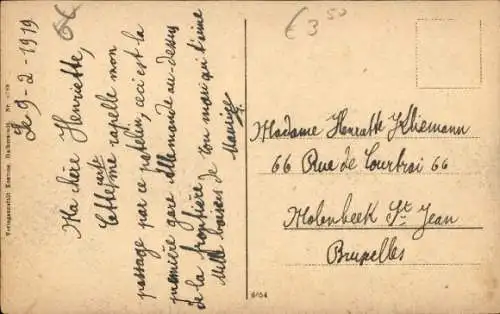 Le 9-2-1919
Ma chère Henriette,
Cette carte me rapelle mon
passage par ce patelin, ceci est la
première gare allemande au-dessus
de la frontière
Mille baisers de ton mari qui t'aime
Maurice
€ 3 50
Madame Henriette Kliemann
66 Rue de Courtrai 66
Molenbeek St. Jean
Bruxelles